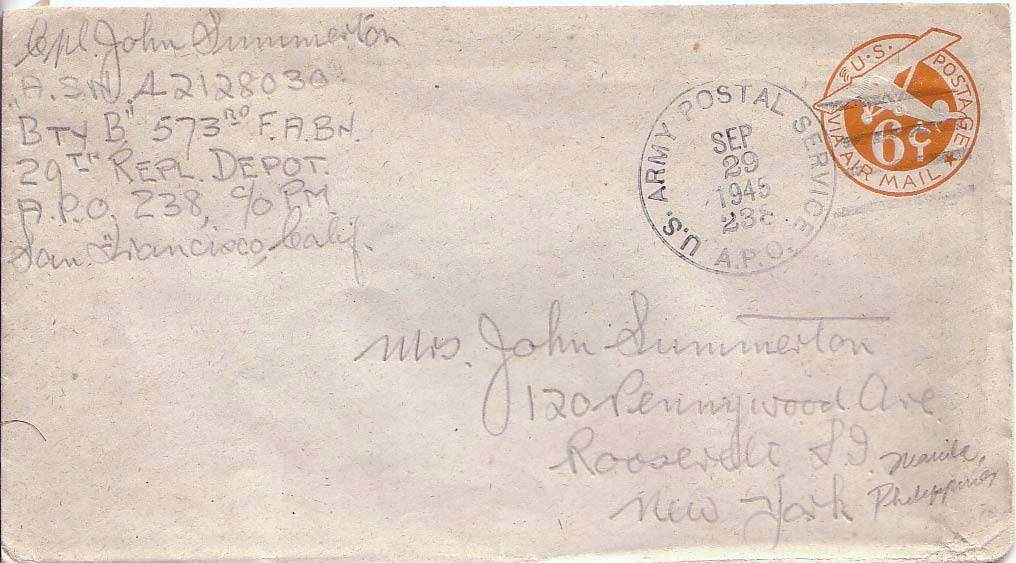 Cpl. John Summerton
A.S.N. 42128030
Bty "B" 573rd F.A.BN.
29TH REPL. DEPOT.
A.P.O. 238, c/o PM
San Francisco, Calif.
U.S. ARMY POSTAL SERVICE
SEP
29
1945
238
A.P.O.
U.S. POSTAGE
6¢
VIA AIR MAIL
Mrs. John Summerton
120 Pennywood Ave
Roosevelt L I
New York
Manila,
Philippines